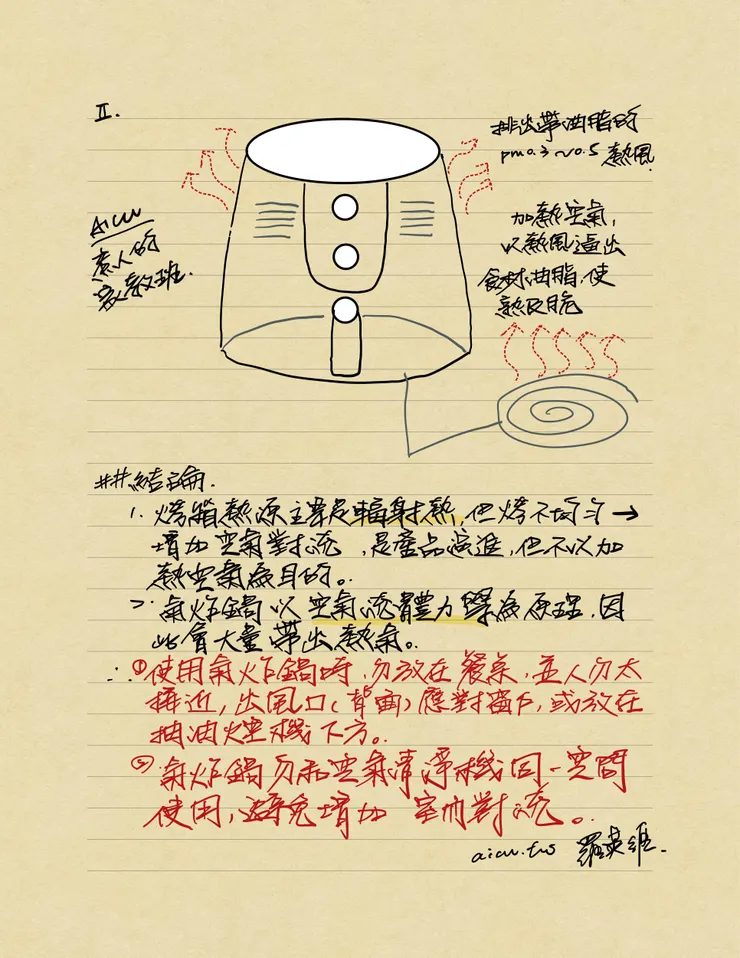 II.
排出帶油脂的
pm0.3~0.5 熱風
加熱空氣,
以熱風逼出
食材油脂,使
熱皮脆
Aicw
素人的
家教班.
##結論.
1. 烤箱熱源主要是輻射熱,但烤不均勻→
增加空氣對流,是產品演進,但不以加
熱空氣為目的。
2. 氣炸鍋以空氣流體力學為原理,因
此會大量帶出熱氣。
∴①使用氣炸鍋時,勿放在餐桌,並人勿太
接近,出風口(背面)應對窗戶,或放在
抽油煙機下方。
②氣炸鍋勿和空氣清淨機同一空間
使用,避免增加 室內對流。
aicw.tws 羅英維.